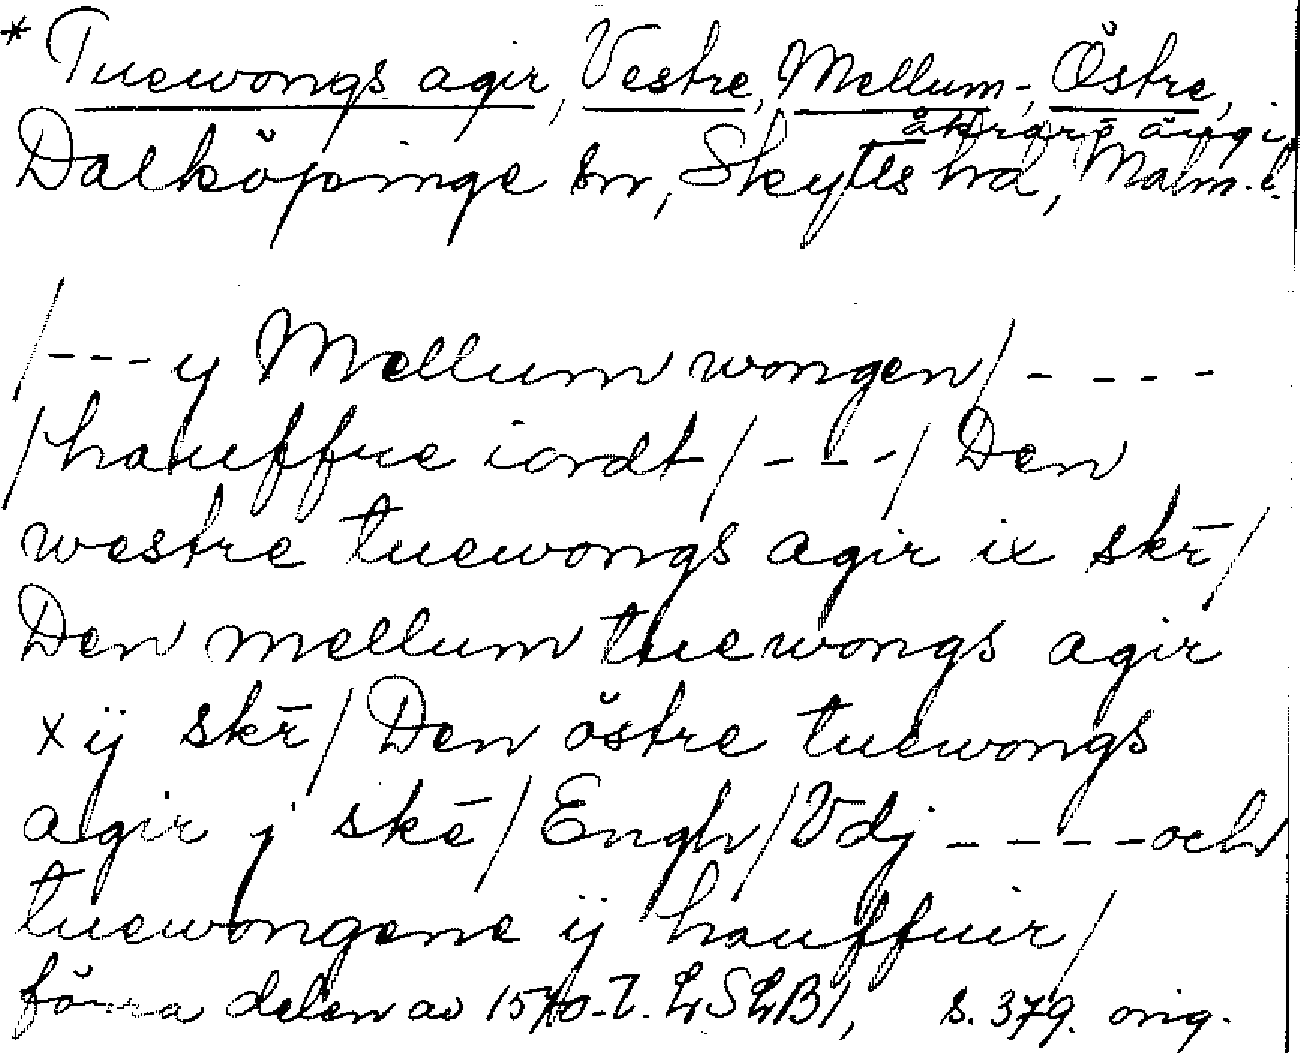 * Tuewongs agir, Vestre, Mellum-, Östre,
åkrar i ängi
Dalköpinge sn, Skytts hd, Malm.l.
/---y Mellum wongen/----
/hauffue iordt/---/Den
westre tuewongs agir ix skr̄/
Den mellum tuewongs agir
xij skr̄/Den östre tuewongs
agir j skē/Engh/Vdj ----och
tuewongene ij hauffuir/
förra delen av 1570-t. LSLB1, s. 379. orig.